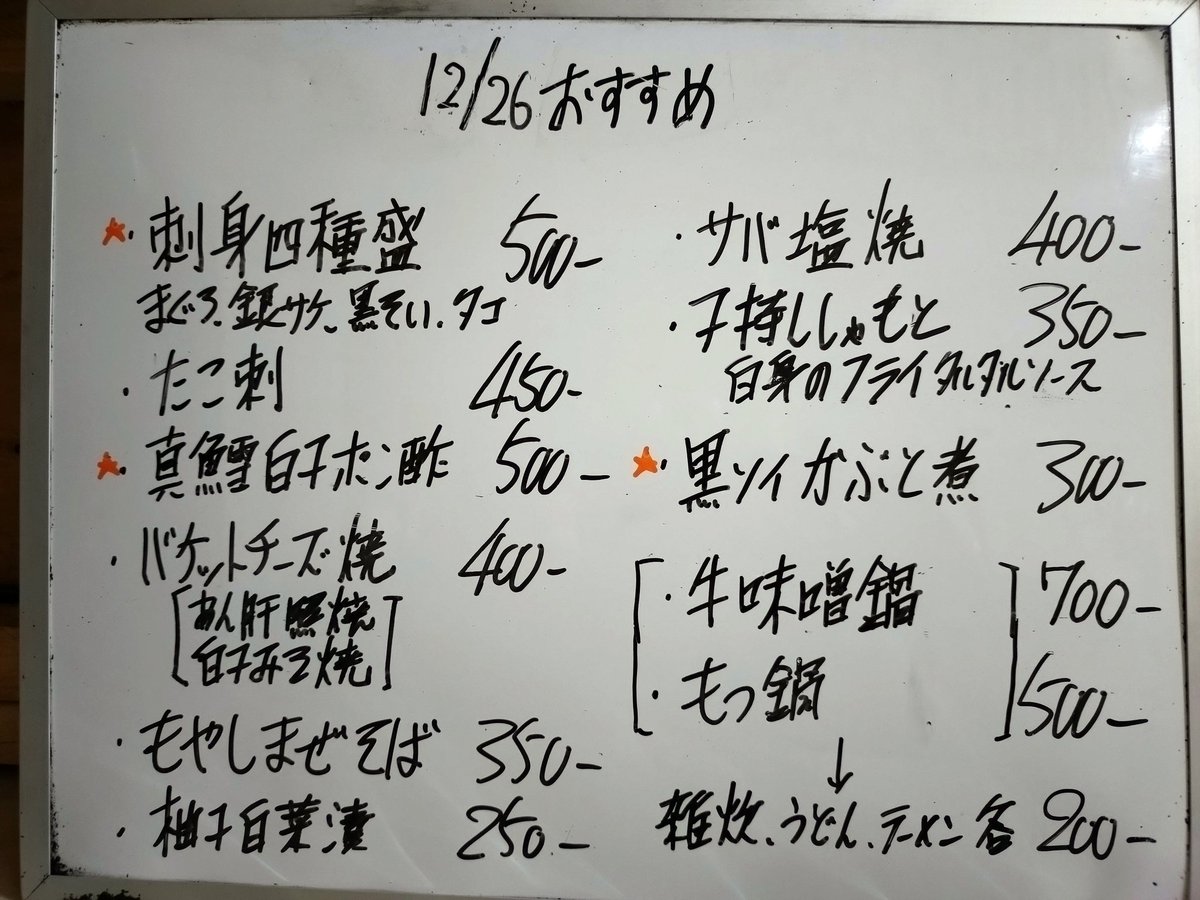 12/26おすすめ
★・刺身四種盛 500-
まぐろ、銀サケ、黒そい、タコ
・たこ刺 450-
★・真鱈白子ポン酢 500-
・バケットチーズ焼 400-
[あん肝照焼
白子みそ焼]
・もやしまぜそば 350-
・柚子白菜漬 250-
・サバ塩焼 400-
・子持ししゃもと 350-
白身のフライタルタルソース
★・黒ソイかぶと煮 300-
[・牛味噌鍋] 700-
[・もつ鍋] 500-
↓
雑炊、うどん、ラーメン各 200-